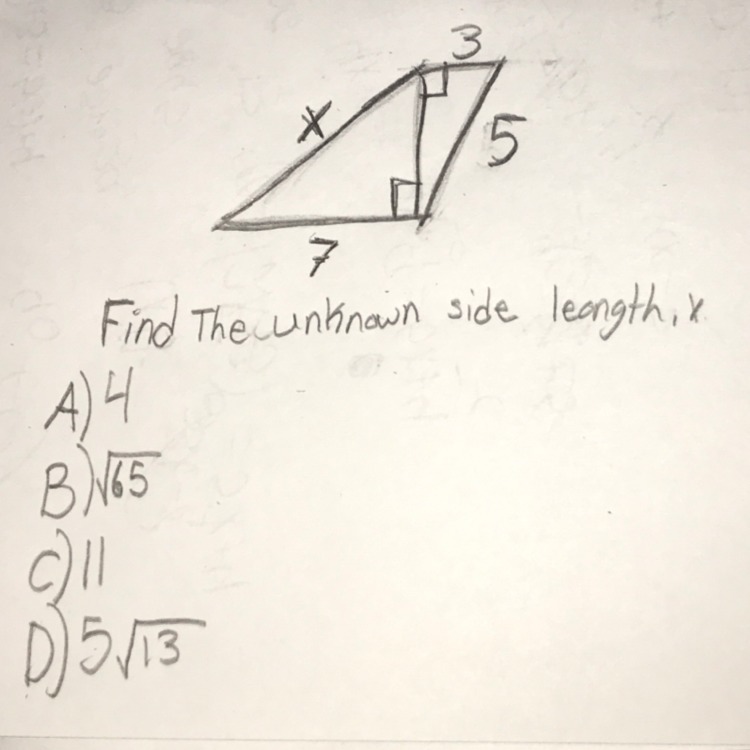 3
x
5
7
Find The unknown side leongth, x
A) 4
B) √65
C) 11
D) 5√13